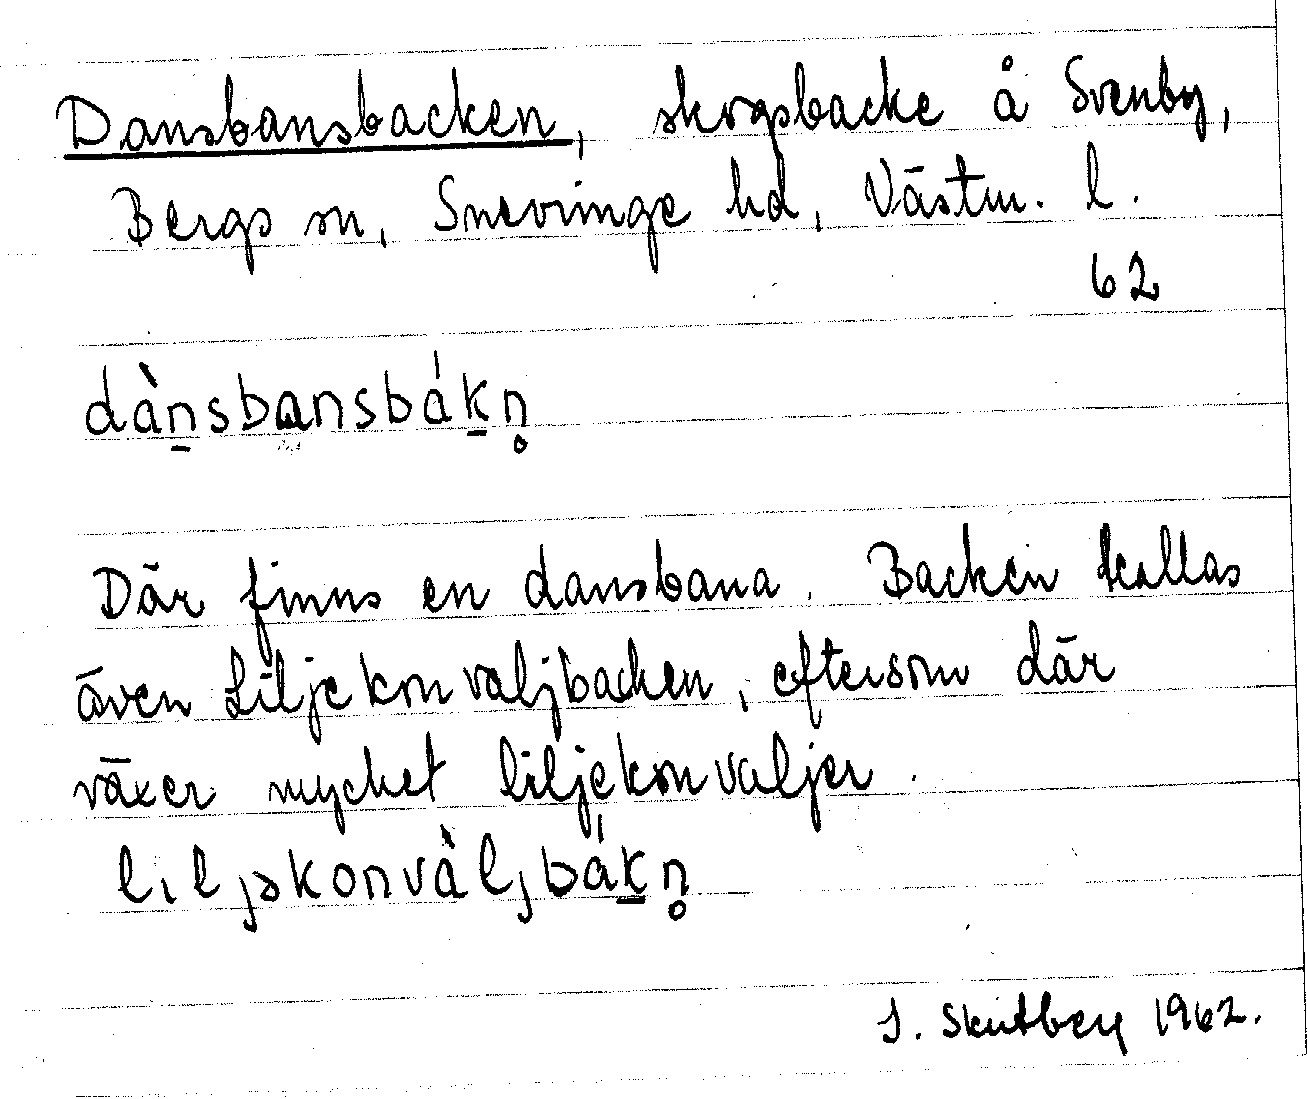 Dansbansbacken, skogsbacke å Svenby,
Bergs sn, Snevringe hd, Västm. l.
62
dànsbansbákn̥
Där finns en dansbana. Backen kallas
även Liljekonvaljbacken, eftersom där
växer mycket liljekonvaljer.
liljəkonvàljbákn̥
J. Skutberg 1962.